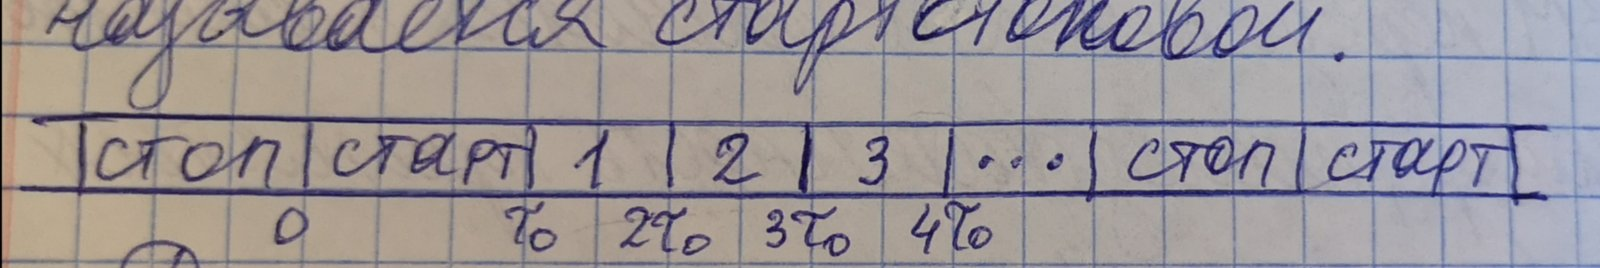 называется стартстоповой.
|стоп|старт|1|2|3|...|стоп|старт|
0 τ₀ 2τ₀ 3τ₀ 4τ₀